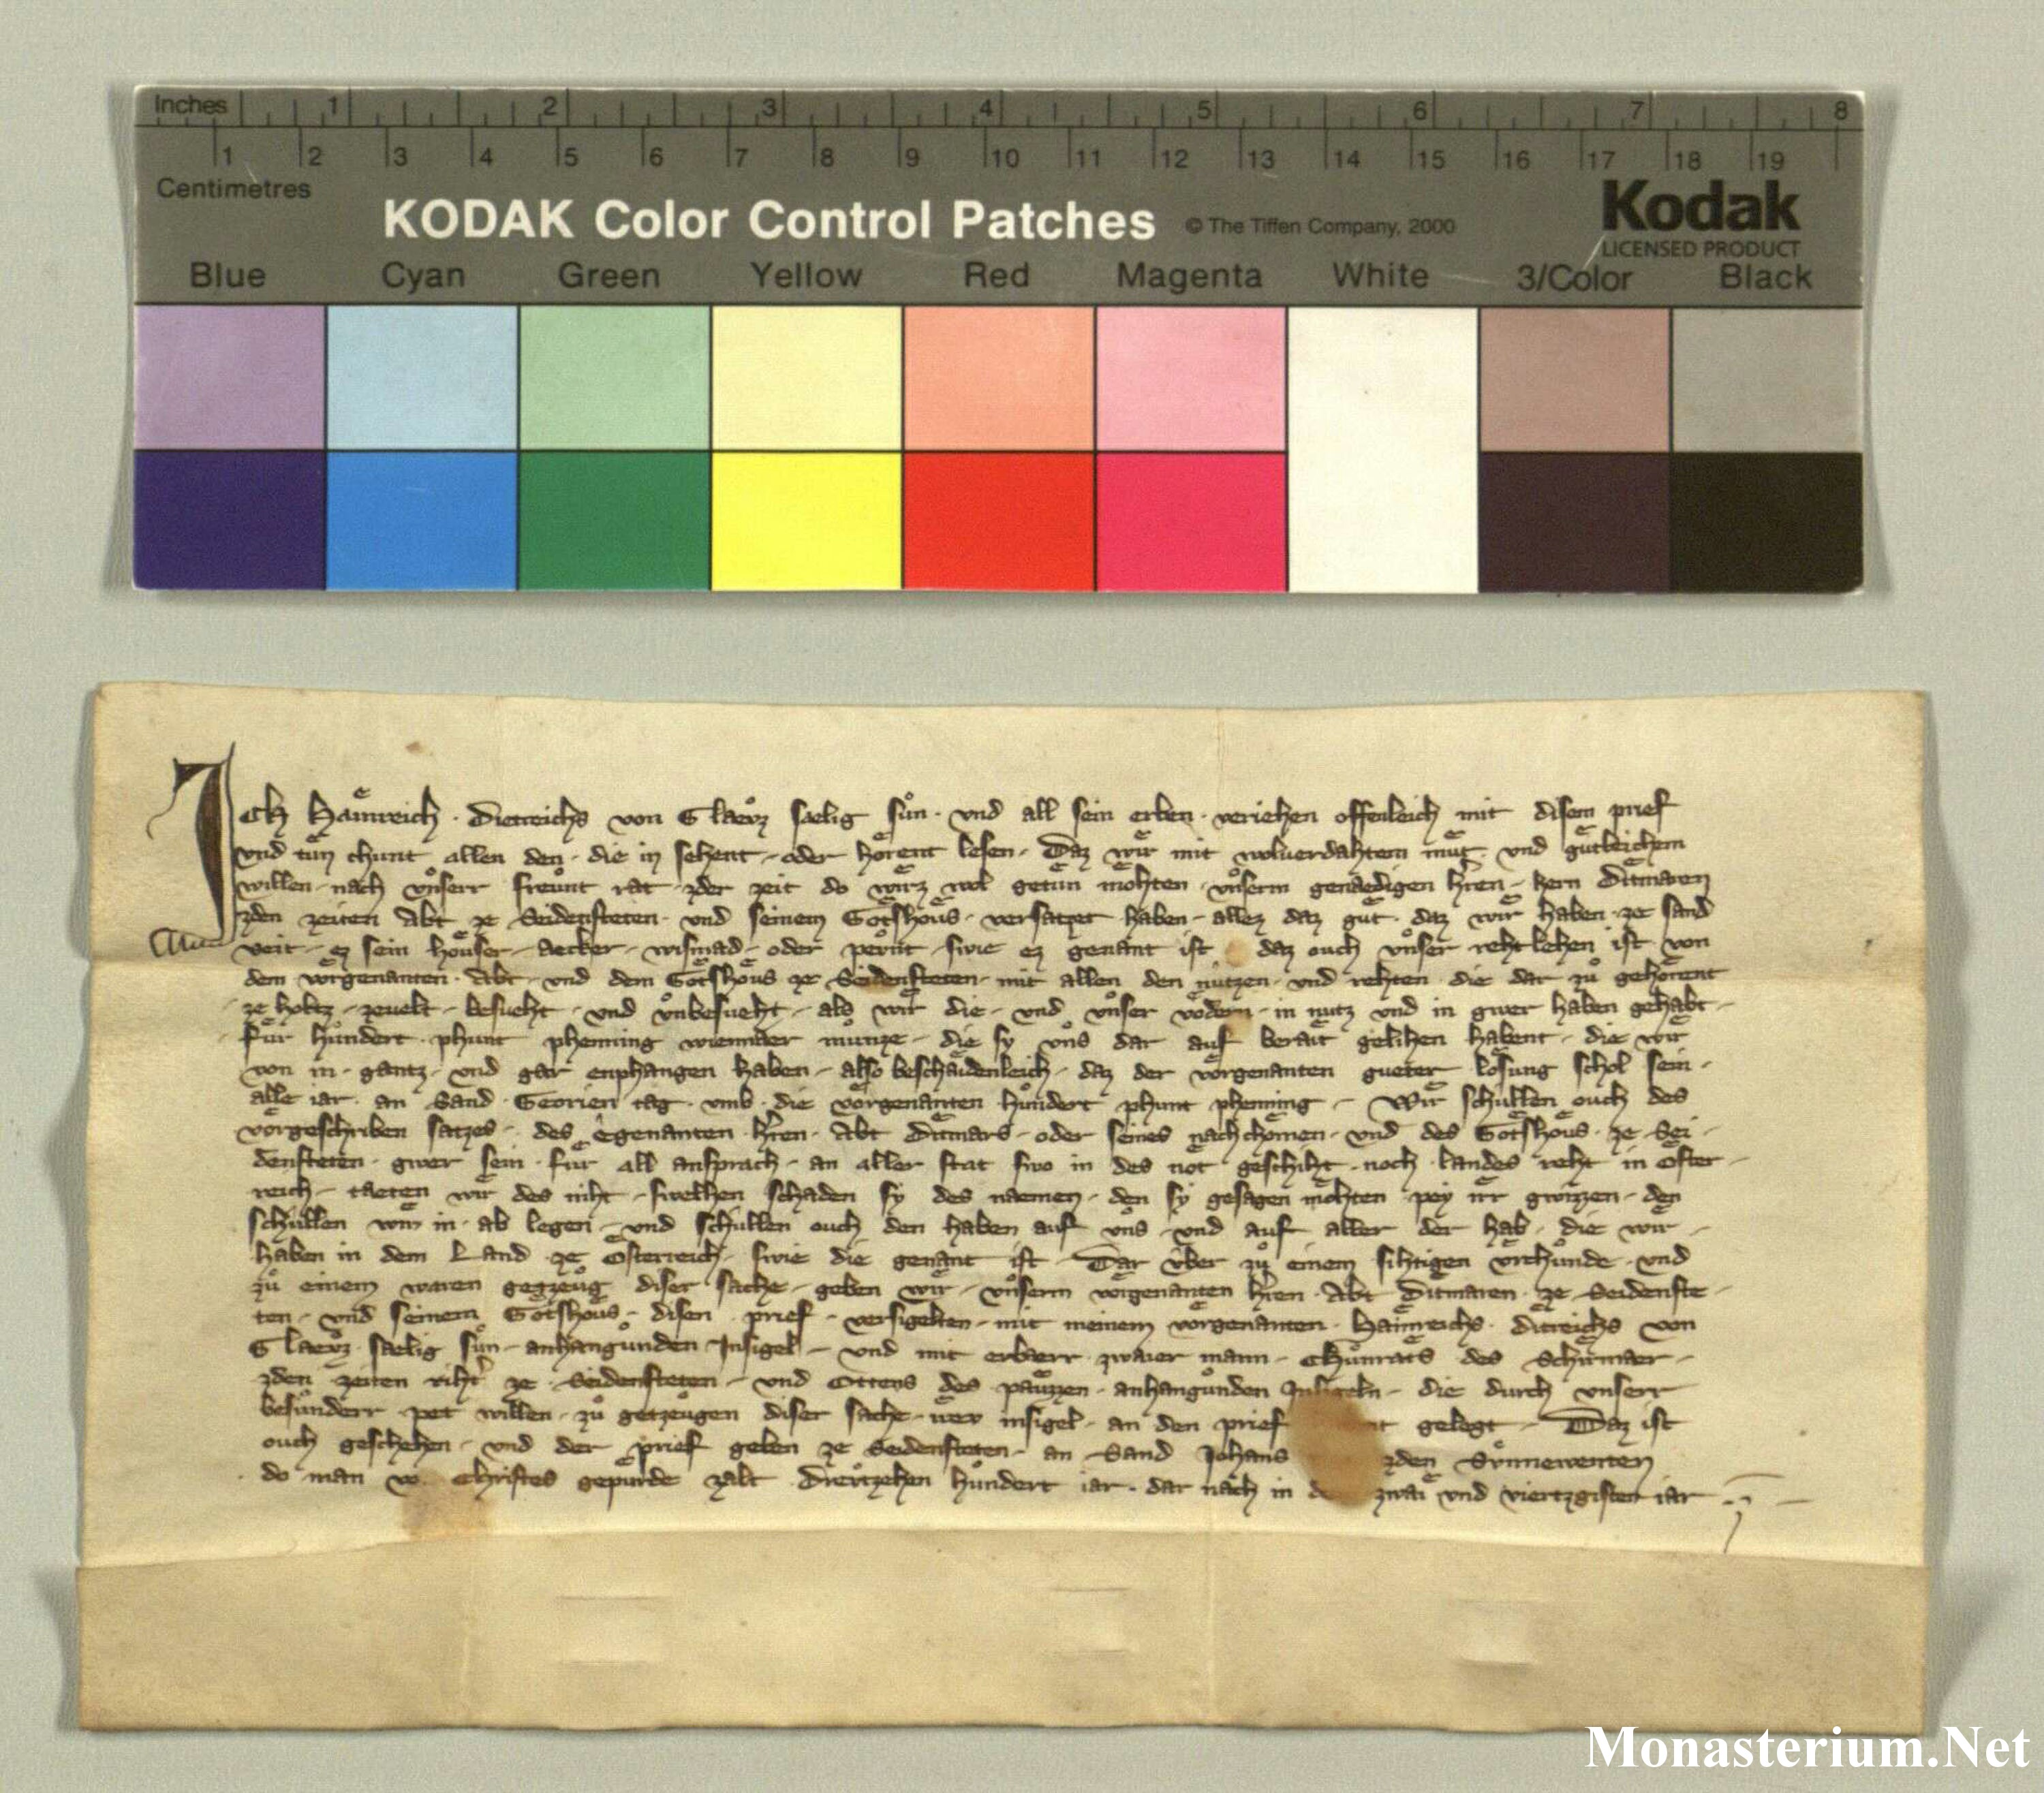 Inches 1 2 3 4 5 6 7 8
1 2 3 4 5 6 7 8 9 10 11 12 13 14 15 16 17 18 19
Centimetres
KODAK Color Control Patches © The Tiffen Company, 2000 Kodak
LICENSED PRODUCT
Blue Cyan Green Yellow Red Magenta White 3/Color Black
Ich Haͤinreich · Dietreichs von Glaevz saelig suͦn · vnd all sein erben · veriehen offenleich mit disem prief
vnd tuͤn chunt allen den · die in sehent · oder hoͤrent lesen · Daz wir mit wolverdahtem muͤt · vnd guͤtleichem
willen · nach vnserr freuͦnt rat · zder zeit do wirz wol getuͤn moͤhten · vnserm genaedigen hren · hern Ditmaren
zden zeiten Abt ze Seidensteten · vnd seinem Gotshous · versatzet haben · allez daz guͤt · daz wir haben · ze sand
veit · ez sein houser · aecker · wismad · oder · swie ez genant ist daz ouch vnser rehtlehen ist von
dem vorgenanten · Abt · vnd dem Gotshous ze Seidensteten · mit allen den nutzen · vnd rehten · die dar zuͦ gehoͤrent
ze holtz · zevelt · besueht · vnd vnbesueht · als wir die · vnd vnser vodern · in nutz vnd in gwer haben gehabt ·
fuͤr hundert · phunt phenning wiennaer munze · die sy vns dar auf berait gelihen habent · die wir
von in · gantz · vnd gar enphangen haben · also beschaidenleich · daz der vorgenanten gueter losung schol sein ·
alle iar · an Sand · Georien tag · vmb · die vorgenanten hundert phunt phenning · Wir schullen ouch des
vorgeschriben satzes · des egenanten · hren · Abt Ditmars · oder seines nachchomen · vnd des Gotshous · ze Sei ·
densteten · gwer sein · fuͤr all ansprach · an aller stat swo in des not geschiht · noch · landes reht in Oster ·
reich · taeten wir des niht · swelhen schaden sy des naemen · den sy gesagen moͤhten pey irr gwizzen · den
schullen wir in · ab legen · vnd schullen ouch den haben auf vns · vnd auf aller der hab · die wir ·
haben in dem Land ze Osterreich · swie die genant ist · Dar vber zuͦ einem sihtigen vrchunde · vnd
zuͦ einem waren gezeug diser sache · geben wir · vnserm vorgenanten hren · Abt Ditmaren · ze Seidenste ·
ten · vnd seinem Gotshous · disen · prief · versigelten · mit meinem vorgenanten · Hainreichs · Ditreichs von
Glaevz · saelig suͦn · anhangunden Insigel · vnd mit erbaerr zwaier mann · Chuͤnrats des Schirmaer ·
zden zeiten riht ze Seidensteten · vnd Ottens des · anhangunden Insigeln · die durch vnserr
besunderr pet willen · zuͦ getzeugen diser sache · insigel · an den prief gelegt · Daz ist
ouch geschehen · vnd der prief geben ze Seidensteten · an Sand Johans zden Sunnewenten
do man Christes gepurde zalt dreutzehen hundert iar · dar nach in zwai vnd viertzgisten iar
Monasterium.Net